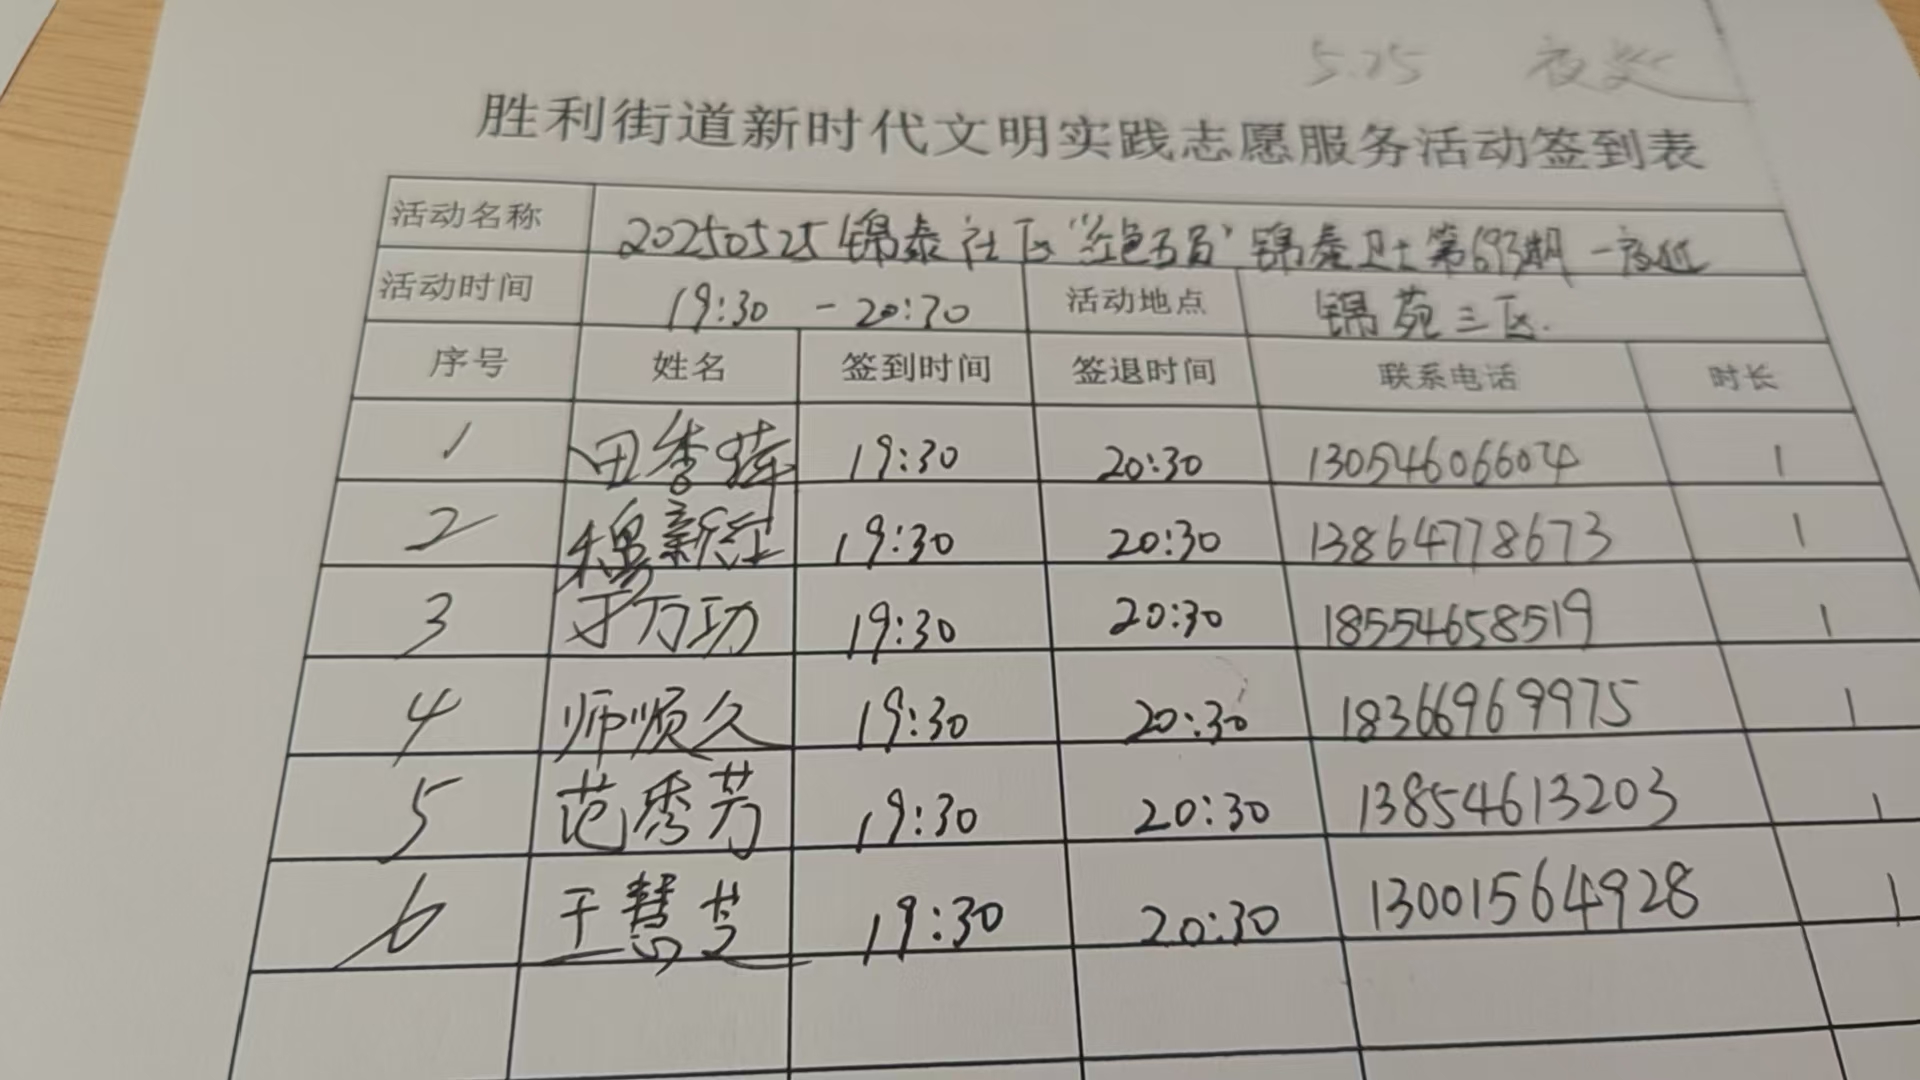 5.25 夜巡
胜利街道新时代文明实践志愿服务活动签到表
活动名称 20250525锦泰社区“红色五员”锦泰卫士第693期—夜巡
活动时间 19:30 - 20:30 活动地点 锦苑三区.
序号 姓名 签到时间 签退时间 联系电话 时长
1 田秀 19:30 20:30 13054606604 1
2 穆新 19:30 20:30 13864778673 1
3 于万功 19:30 20:30 18554658519 1
4 师顺久 19:30 20:30 18366969975 1
5 范秀芳 19:30 20:30 13854613203 1
6 王慧芝 19:30 20:30 13001564928 1